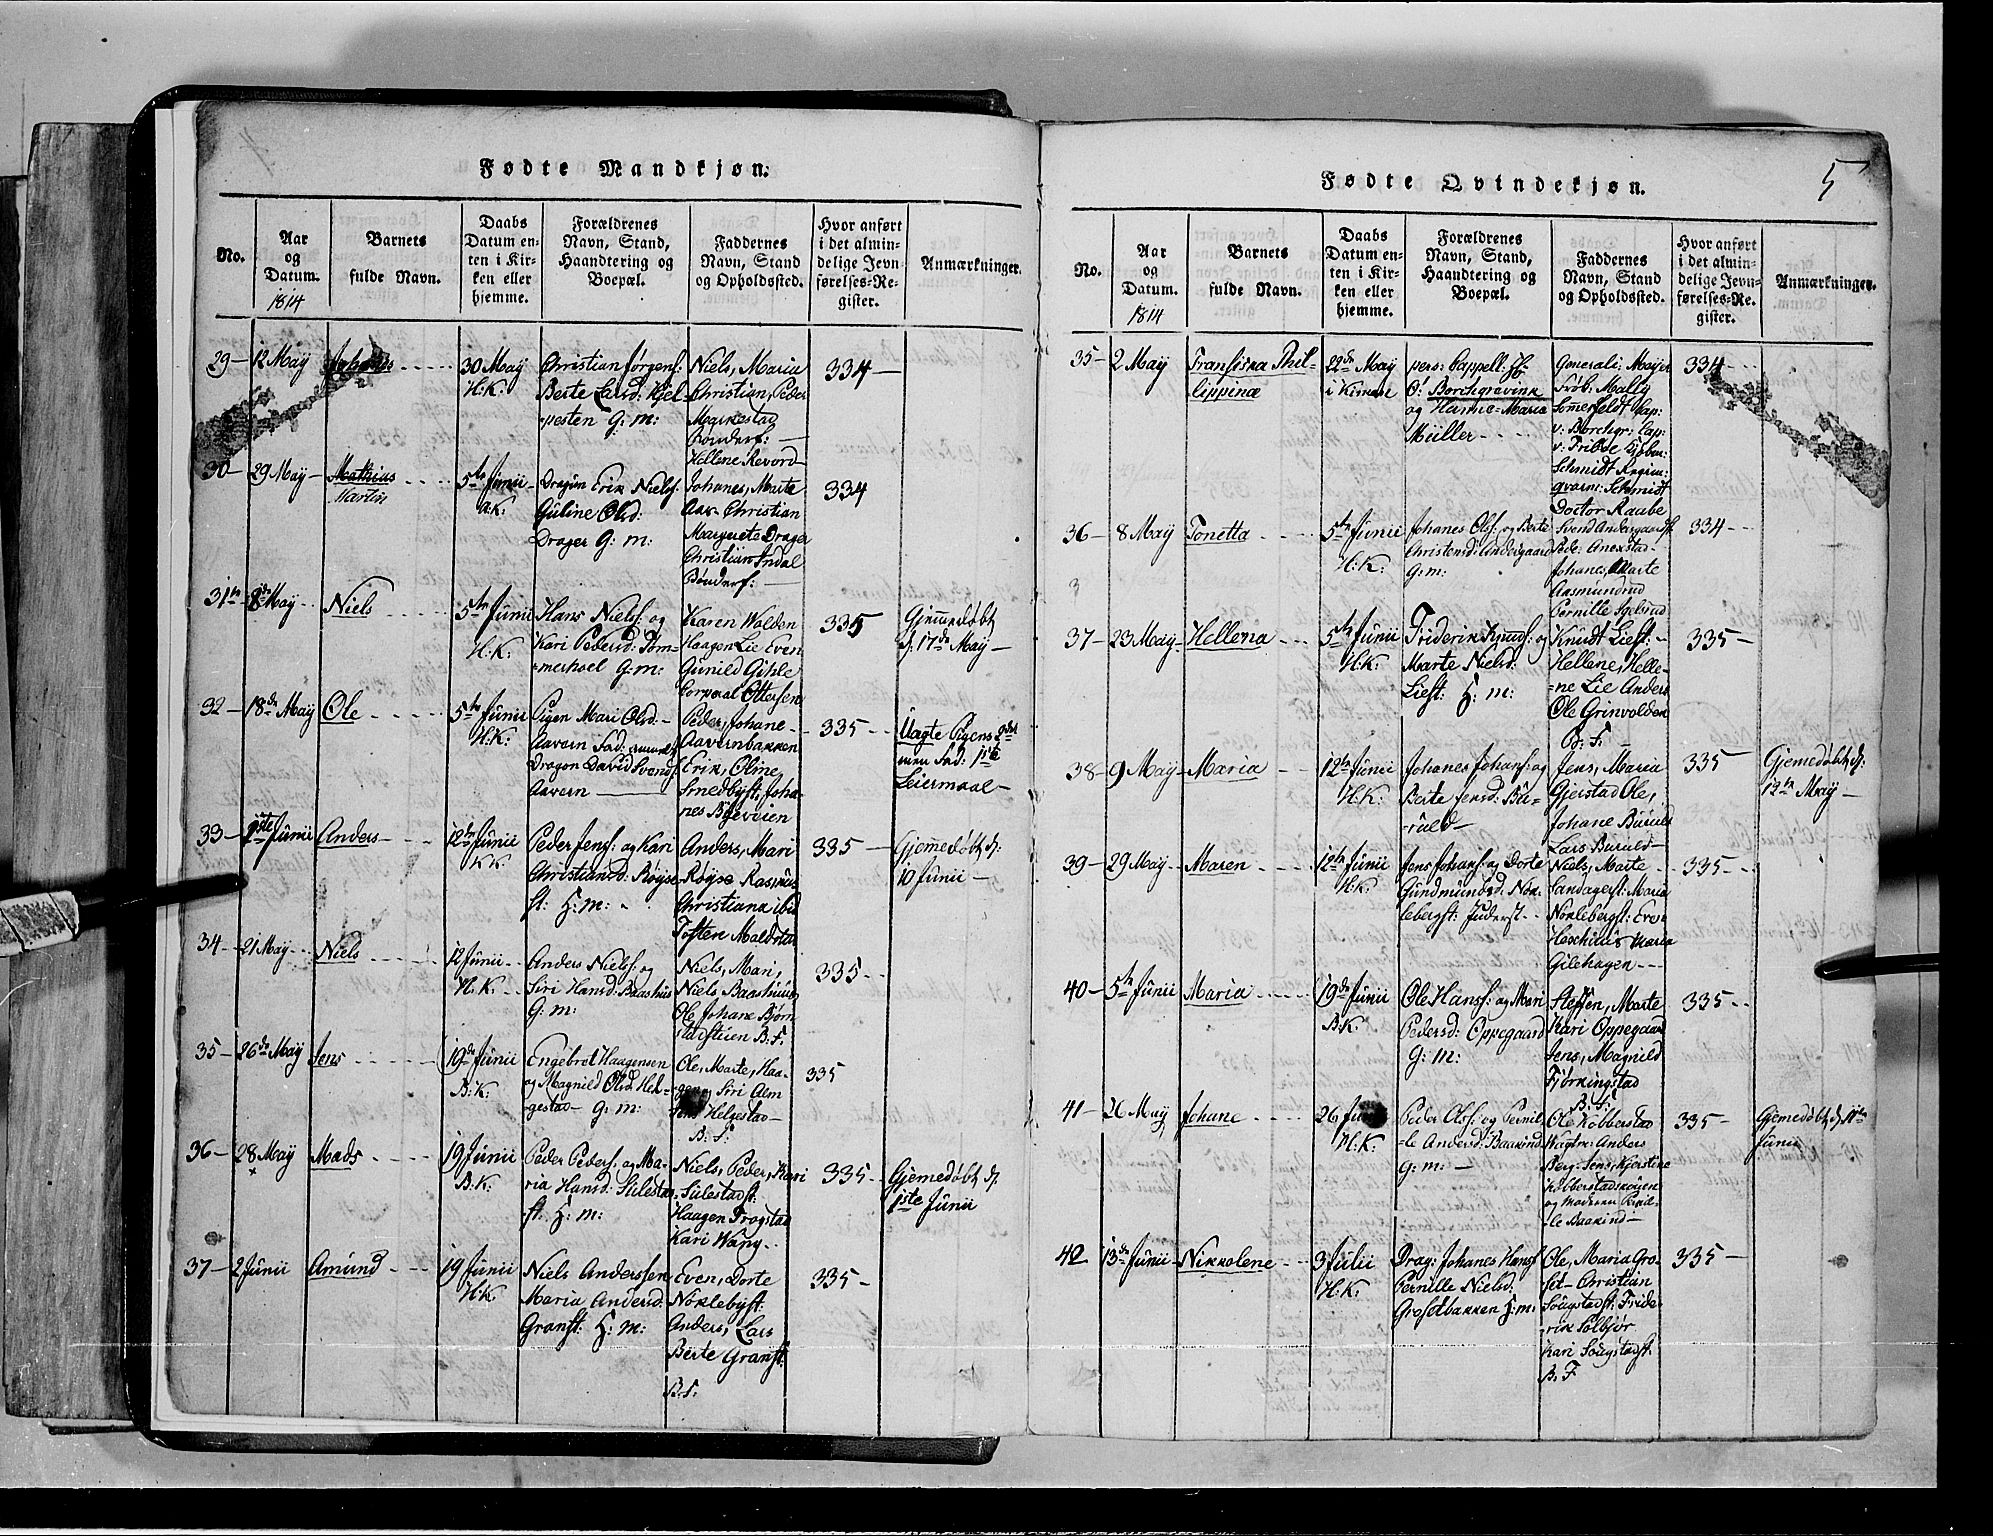 Fødte Mandkjøn.
No.
Aar
og
Datum.
1814
Barnets
fulde Navn.
Daabs
Datum en-
ten i Kir-
ken eller
hjemme.
Forældrenes
Navn, Stand,
Haandtering og
Boepæl.
Faddernes
Navn, Stand
og Opholdssted.
Hvor anført
i det almin-
delige Jevn-
førelses-Re-
gister.
Anmærkninger.
29 - 12 May
Johanes
30 May
H: K:
Christian Jørgens:
Berte Larsd: Hjel-
pesten G: m:
Niels, Maria
Christian, Peder
Mærkestad
Bönderf:
Hellene Revord
334
30 - 29 May
Mathias
Martin
5te Junii
H: K:
Dragun Erik Nielss:
Guline Olsd:
Drager G: m:
Johanes, Marte
Aas Christian
Margrete Drager
Christian Indal
Bönderf:
334
31te 8de May
Niels
5te Junii
H: K:
Hans Nielss: og
Kari Pedersd: Tom-
merhoel G: m:
Karen Wolden
Haagen Lie Even
Gunild Gihle
Corporal Ottersen
335
Gjemedöbt
d: 17de May
32 - 18de May
Ole
5te Junii
H: K:
Pigen Mari Olsd:
Aavern Fad:
Dragon David Svends:
Aavern
Peder, Johane
Aavernbakken
Erik, Oline
Smedbyst, Joha-
nes Bøeveien
335
Uagte Pigens 2det
men Fad: 1ste
Leiermaal
33 - 1ste Junii
Anders
12te Junii
K: K:
Peder Jenss: og Kari
Christiansd: Røyse
st: H: m:
Anders, Mari
Røyse Rasmus
Christiana ibid
Tosten Malestad
335
Gjemedöbt d:
10 Junii
34 - 21 May
Niels
12 Junii
H: K:
Anders Nielss: og
Siri Hansd: Baashus
G: m:
Niels, Mari,
Niels Baashuus
Ole Johane Bjørn-
stadstuen B: F:
335
35 - 26de May
Jens
19de Junii
B: K:
Engebret Haagensen
og Magnild Olsd: Hel-
gestad G: m:
Ole, Marte, Haa-
gen, Siri Alm
Jens Helgestad
B: F:
335
36 - 28 May
Mads
19 Junii
B: K:
Peder Peders: og Ma-
ria Hansd: Sulestad
st: H: m:
Niels, Peder, Kari
Sulestadst:
Haagen Frogstad
Kari Wang
335
Gjemedöbt d:
1ste Junii
37 - 2 Junii
Amund
19 Junii
H: K:
Niels Anderssen
Maria Andersd:
Granst: H: m:
Even, Dorte
Noklebyst:
Anders, Lars
Berte Granst:
B: F:
335
5
Fødte Qvindekjøn.
No.
Aar
og
Datum.
1814
Barnets
fulde Navn.
Daabs
Datum en-
ten i Kir-
ken eller
hjemme.
Forældrenes
Navn, Stand,
Haandtering og
Boepæl.
Faddernes
Navn, Stand
og Opholdssted.
Hvor anført
i det almin-
delige Jevn-
førelses-Re-
gister.
Anmærkninger.
35 - 2 May
Fransiska Phil-
lippina
22de May
i Kirken
pers: Cappell:
Borchgrevink
og Hanne Maria
Müller
General: Majer
Frøb: Maltz
Somerfeldt Cap:
v: Borchgr: Cap:
v: Tribbe
Schmidt Regim:
qvarm: Schmidt
Doctor Raabe
334
36 - 8 May
Tonetta
5te Junii
H: K:
Johanes Olss: og Berte
Christensd: Andersgaard
G: m:
Svend Andersgaardst:
Pede: Anexstad
Johanes, Marte
Aasmundrud
Pernille Igelsrud
334
3
37 - 23 May
Hellena
5te Junii
H: K:
Friderik Knuds: og
Marte Nielsd:
Liest: H: m:
Knudt Liest:
Hellene, Helle-
ne Lie Anders
Ole Grinvolden
B: F:
335
38 - 9 May
Maria
12te Junii
H: K:
Johanes Johans: og
Berte Jensd: Bu-
ruld
Jens, Maria
Gjerstad Ole,
Johane Buruld
Lars Buruld
335
Gjemedöbt d:
12te May
39 - 29 May
Maren
12te Junii
H: K:
Jens Johans: og Dorte
Gundmundsd: Nok-
lebergst: Inderst
Niels, Marte
Sandagerst: Maria
Noklebergst: Eve
Haschilius Maria
Gilehagen
335
40 - 5te Junii
Maria
19de Junii
B: K:
Ole Hanss: og Mari
Pedersd: Oppegaard
G: m:
Steffen, Marte
Kari Oppegaard
Jens, Magnild
Fjørkingstad
B: F:
335
41 - 26 May
Johane
26 Junii
H: K:
Peder Olss: og Pernil-
le Andersd: Baarind
G: m:
Ole Kobberstad
Wagtm: Anders
Berg Jens, Kjerstine
Kobberstadskougen
og Moderen Pernil-
le Baarind
335
Gjemedöbt d: 11te
Junii
42 13de Junii
Nikkolene
3 Julii
H: K:
Drag: Johanes Hanss:
Pernille Nielsd:
Grosetbakken H: m:
Ole, Maria Gro-
set Christian
Sougstadst: Fride-
rik Solbjør
Kari Sougstadst:
B: F
335